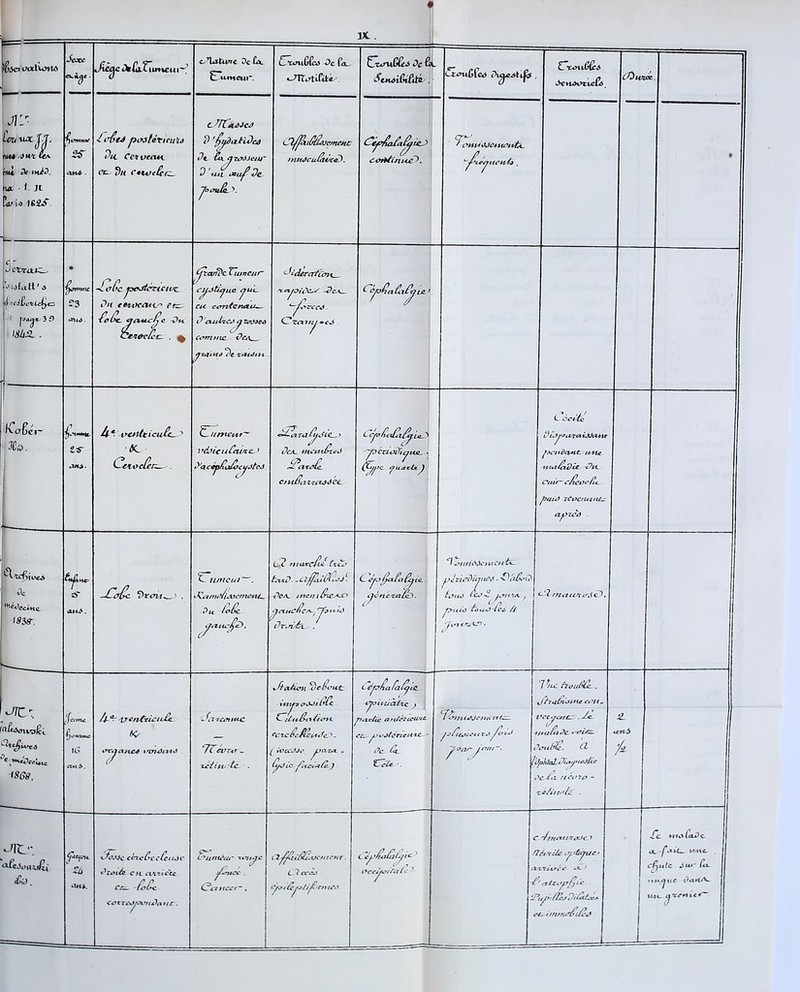 IX.
Observations
Sexe
et âge.
Siège de la Tumeur
Nature de la
Tumeur.
Troubles de la
Motilité.
Troubles de la
Sensibilité.
Troubles digestifs.
Troubles
Sensoriels.
Durée.
Paris 1825.
homme
25
ans.
Lobes postérieurs
du Cerveau
et du Cervelet
Masses
d'hydatides
de la grosseur
d'un œuf de
poule.
Affaiblissement
musculaire.
Céphalalgie
continue.
Vomissements
fréquents.
page 39
1842.
homme
23
ans.
Lobe postérieur
du cerveau et
lobe gauche du
Cervelet.
Grande Tumeur
cystique qui
en contenait
d'autres grosses
comme des
grains de raisin
Sidération
rapide des
forces.
Crampes.
Céphalalgie
Kober
homme
25
ans.
4e ventricule
&
Cervelet.
Tumeur
vésiculaire
d'acéphalocystes
Paralysie
des membres
Parole
embarrassée
Céphalalgie
périodique.
(Type quarte)
Cécité
disparaissant
pendant une
maladie du
cuir chevelu
puis revenant
après.
Archives
de
médecine
1838.
Enfant
5
ans.
Lobe droit.
Tumeur.
Ramollissement
du lobe
gauche.
A marché très
tard. Affaibliss.t
des membres
gauches, puis
droits.
Céphalalgie
générale.
Vomissements
périodiques. D'abord
tous les 2 jours,
puis tous les 4
jours.
Amaurose.
Mr.
Archives
de médecine
1868.
Jeune
homme
16
ans.
4e ventricule
&
organes voisins
Sarcome
—
Névro-
rétinite.
Station debout
impossible
Titubation
cérébelleuse.
(secousse para-
lysie faciale)
Céphalalgie
opiniâtre,
partie antérieure
et postérieure
de la
Tête.
Vomissements
plusieurs fois
par jour.
Vue trouble.
Strabisme con-
vergent. Le
malade voit
double. A
l'Ophtal. Diagnostic
de la névro-
rétinite.
2
ans
½
Mr.
do.
garçon
ans.
Fosse cérébelleuse
droite en arrière
et lobe
correspondant.
Tumeur rouge
foncé.
Cancer.
Affaiblissement.
Accès
épileptiformes
Céphalalgie
occipitale
Amaurose
Névrite optique
arrivée à
l'atrophie.
Pupilles dilatées
et immobiles
Le malade
a fait une
chute sur la
nuque dans
un grenier